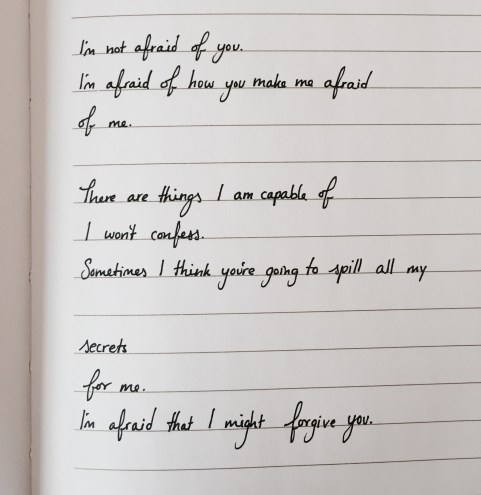 I'm not afraid of you.
I'm afraid of how you make me afraid
of me.
There are things I am capable of
I won't confess.
Sometimes I think you're going to spill all my
secrets
for me.
I'm afraid that I might forgive you.